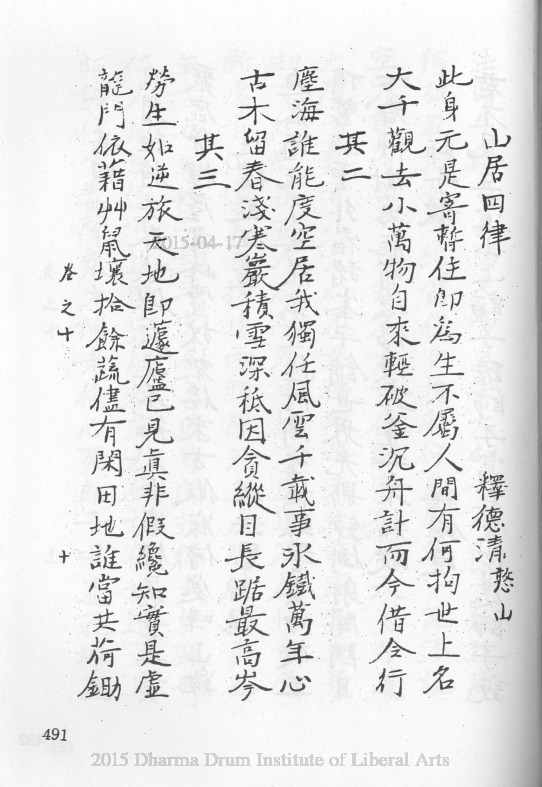 山居四律 釋德清憨山
此身元是寄暫住即為生不屬人間有何拘世上名
大千觀去小萬物自來輕破釜沉舟計而今借令行
其二
塵海誰能度空居我獨任風雲千載事冰鐵萬年心
古木留春淺寒巖積雪深秪因貪縱目長踞最高岑
其三
勞生如逆旅天地即蘧廬已見眞非假纔知實是虛
龍門依藉艸鼠壤拾餘蔬儘有閑田地誰當共荷鋤
卷之十 十
491
2015-04-17
2015 Dharma Drum Institute of Liberal Arts